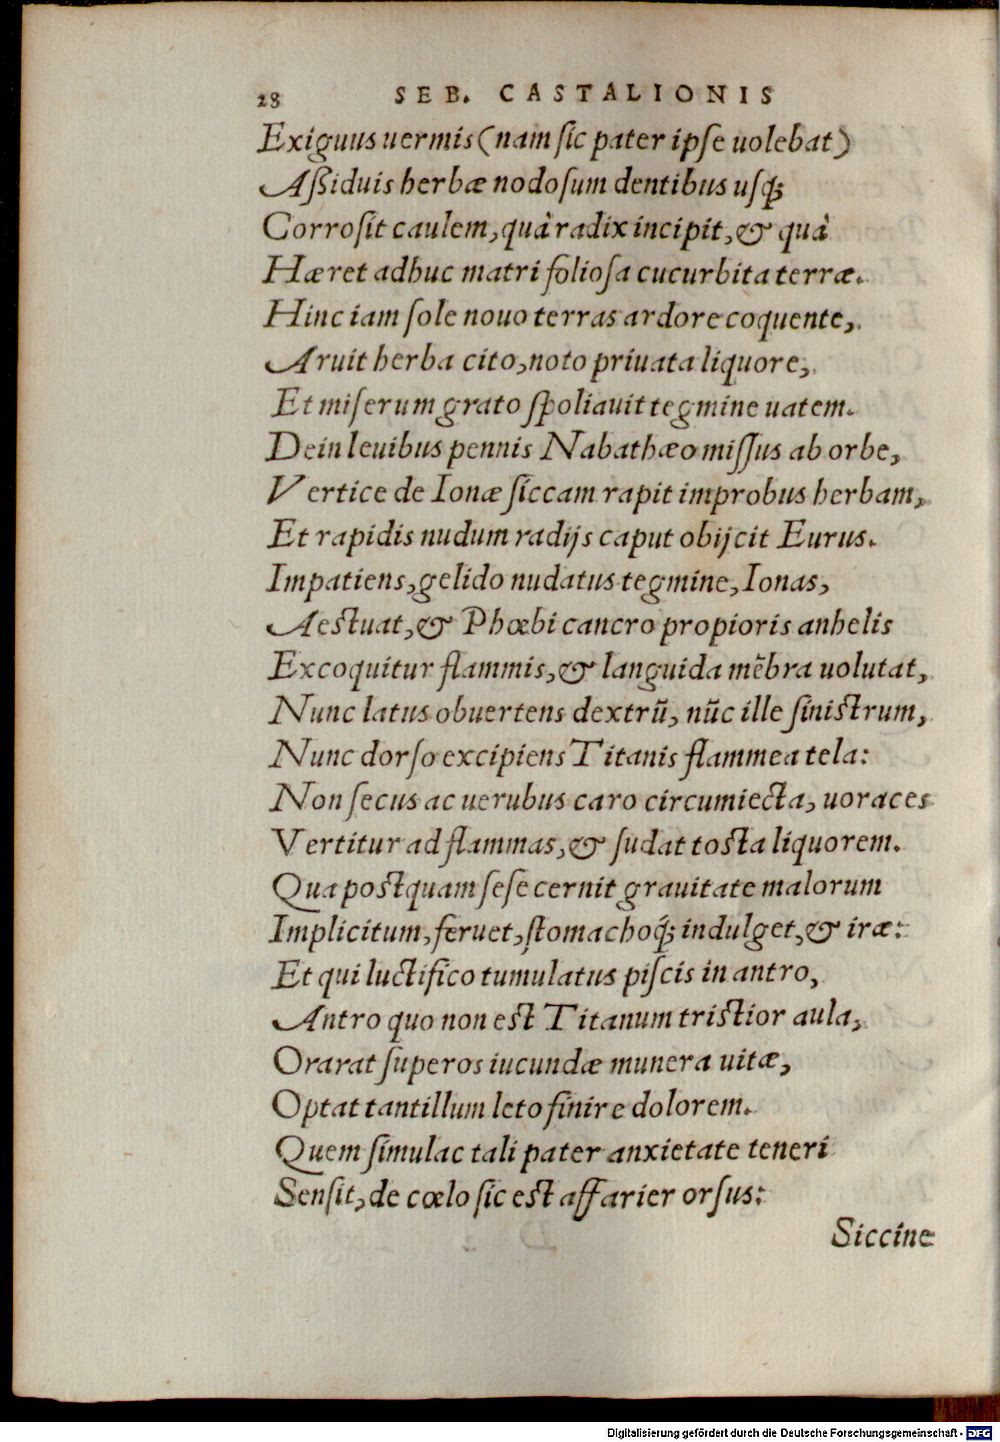 28 SEB. CASTALIONIS
Exiguus uermis (nam sic pater ipse uolebat)
Aßiduis herbæ nodosum dentibus usq́;
Corrosit caulem, quà radix incipit, & quà
Hæret adhuc matri foliosa cucurbita terræ.
Hinc iam sole nouo terras ardore coquente,
Aruit herba cito, noto priuata liquore,
Et miserum grato spoliauit tegmine uatem.
Dein leuibus pennis Nabathæo missus ab orbe,
Vertice de Ionæ siccam rapit improbus herbam,
Et rapidis nudum radijs caput obijcit Eurus.
Impatiens, gelido nudatus tegmine, Ionas,
Aestuat, & Phœbi cancro propioris anhelis
Excoquitur flammis, & languida mẽbra uolutat,
Nunc latus obuertens dextrũ, nũc ille sinistrum,
Nunc dorso excipiens Titanis flammea tela:
Non secus ac uerubus caro circumiecta, uoraces
Vertitur ad flammas, & sudat tosta liquorem.
Qua postquam sese cernit grauitate malorum
Implicitum, feruet, stomachoq́; indulget, & iræ:
Et qui luctifico tumulatus piscis in antro,
Antro quo non est Titanum tristior aula,
Orarat superos iucundæ munera uitæ,
Optat tantillum leto finire dolorem.
Quem simulac tali pater anxietate teneri
Sensit, de cœlo sic est affarier orsus:
Siccine
Digitalisierung gefördert durch die Deutsche Forschungsgemeinschaft - DFG